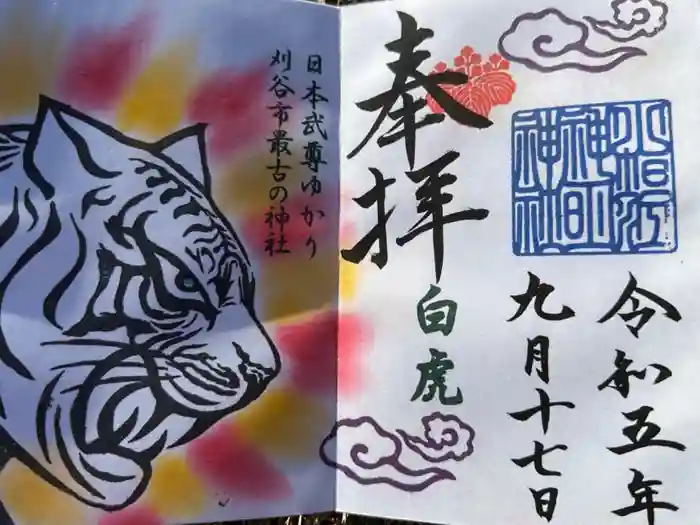 小垣江
神明
神社
令和五年
九月十七日
奉拝
白虎
日本武尊ゆかり
刈谷市最古の神社